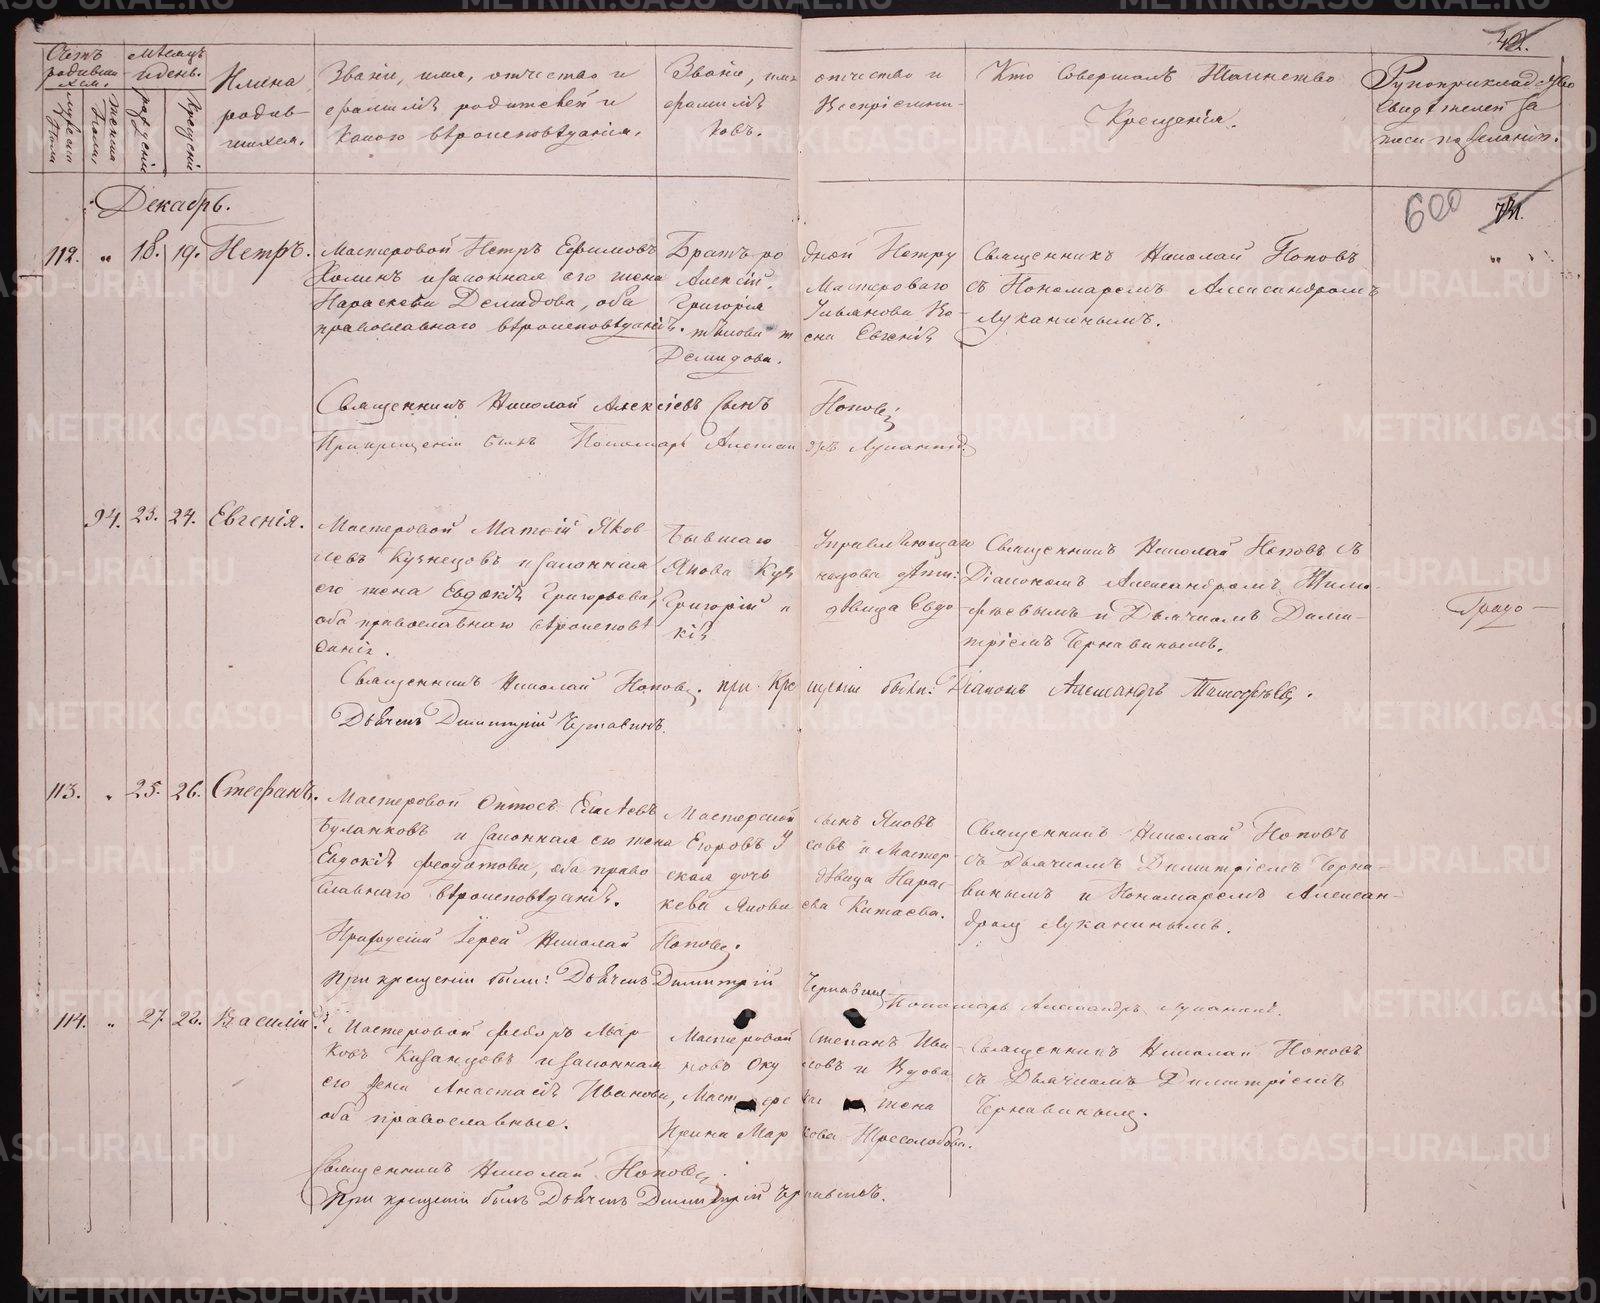 Счетъ родившихся.
Мѣсяцъ и день.
Имена родив-
шихся.
Званіе, имя, отчество и
фамилія родителей и
какого вѣроисповѣданія.
Званіе, имя отчество и
фамилія воспріемни-
ковъ.
Кто совершалъ Таинство
Крещенія.
Рукоприкладство
свидѣтелей за-
писи по желанію.
мужеска пола
женска пола
рожденія
крещенія
Декабрь.
600
112. " 18. 19. Петръ.
Мастеровой Петръ Ефимовъ
и законная его жена
Параскева Демидова, оба
православнаго вѣроисповѣданія.
Братъ родной Петру
Алексій.
Мастероваго
Григорія Ульянова
жена Евгенія
Демидова.
Священникъ Николай Поповъ
съ Пономаремъ Александромъ
Луканинымъ.
Священникъ Николай Алексіевъ сынъ Поповъ
При крещеніи былъ Пономарь Александръ Луканинъ.
94. 23. 24. Евгенія.
Мастеровой Матѳій Яков-
левъ Кузнецовъ и законная
его жена Евдокія Григорьева,
оба православнаго вѣроисповѣ
данія.
Бывшаго Управляющаго
Якова Кузнецова дѣти:
Григорій и дѣвица Евдо-
кія
Священникъ Николай Поповъ съ
Діакономъ Александромъ
и Дьячкомъ Дими-
тріемъ Чернавинымъ.
Священникъ Николай Поповъ. при Крещеніи были: Діаконъ Александръ
Дьячекъ Димитрій Чернавинъ.
113. " 25. 26. Стефанъ.
Мастеровой
и законная его жена
Евдокія Феодотова, оба право
славнаго вѣроисповѣданія.
Мастерской сынъ Яковъ
Егоровъ и Мастер
ская дочь дѣвица Парас
кева Яковлева Китаева.
Священникъ Николай Поповъ
съ Дьячкомъ Димитріемъ Черна-
винымъ и Пономаремъ Алексан-
дромъ Луканинымъ.
Іерей Николай Поповъ.
При крещеніи были: Дьячекъ Димитрій Чернавинъ Пономарь Александръ Луканинъ.
114. " 27. 28. Василій.
Мастеровой Федоръ Мар-
ковъ и законная
его жена Анастасія Иванова,
оба православные.
Мастеровой Степанъ Ива
новъ и Вдова
жена
Ирина Маркова
Священникъ Николай Поповъ
съ Дьячкомъ Димитріемъ
Чернавинымъ.
Священникъ Николай Поповъ
При крещеніи былъ Дьячекъ Димитрій Чернавинъ.
METRIKI.GASO-URAL.RU